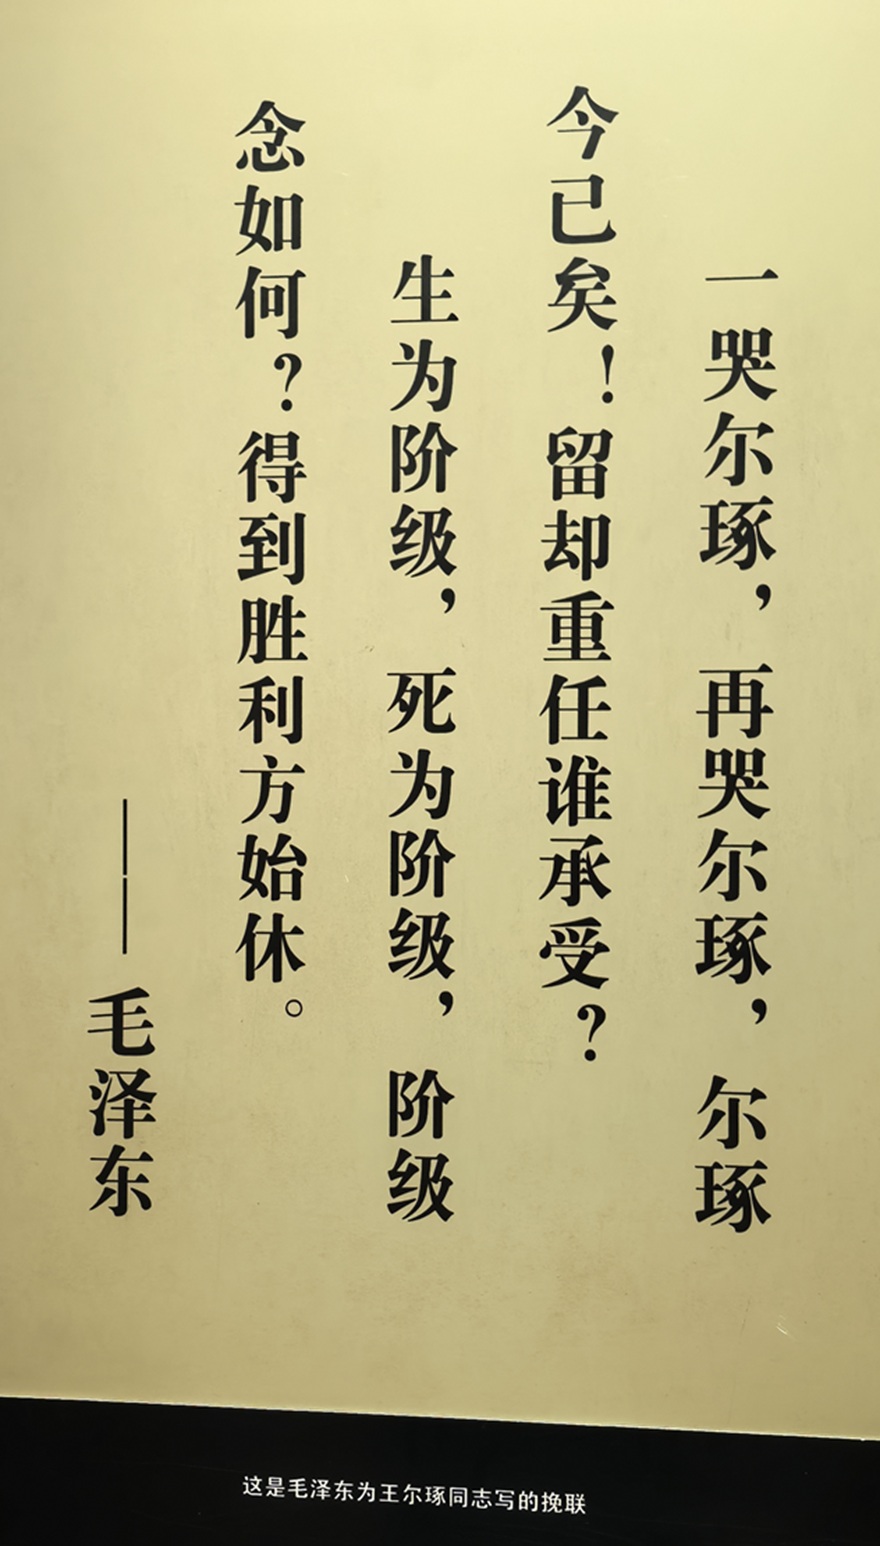 一哭尔琢，再哭尔琢，尔琢
今已矣！留却重任谁承受？
生为阶级，死为阶级，阶级
念如何？得到胜利方始休。
——毛泽东
这是毛泽东为王尔琢同志写的挽联